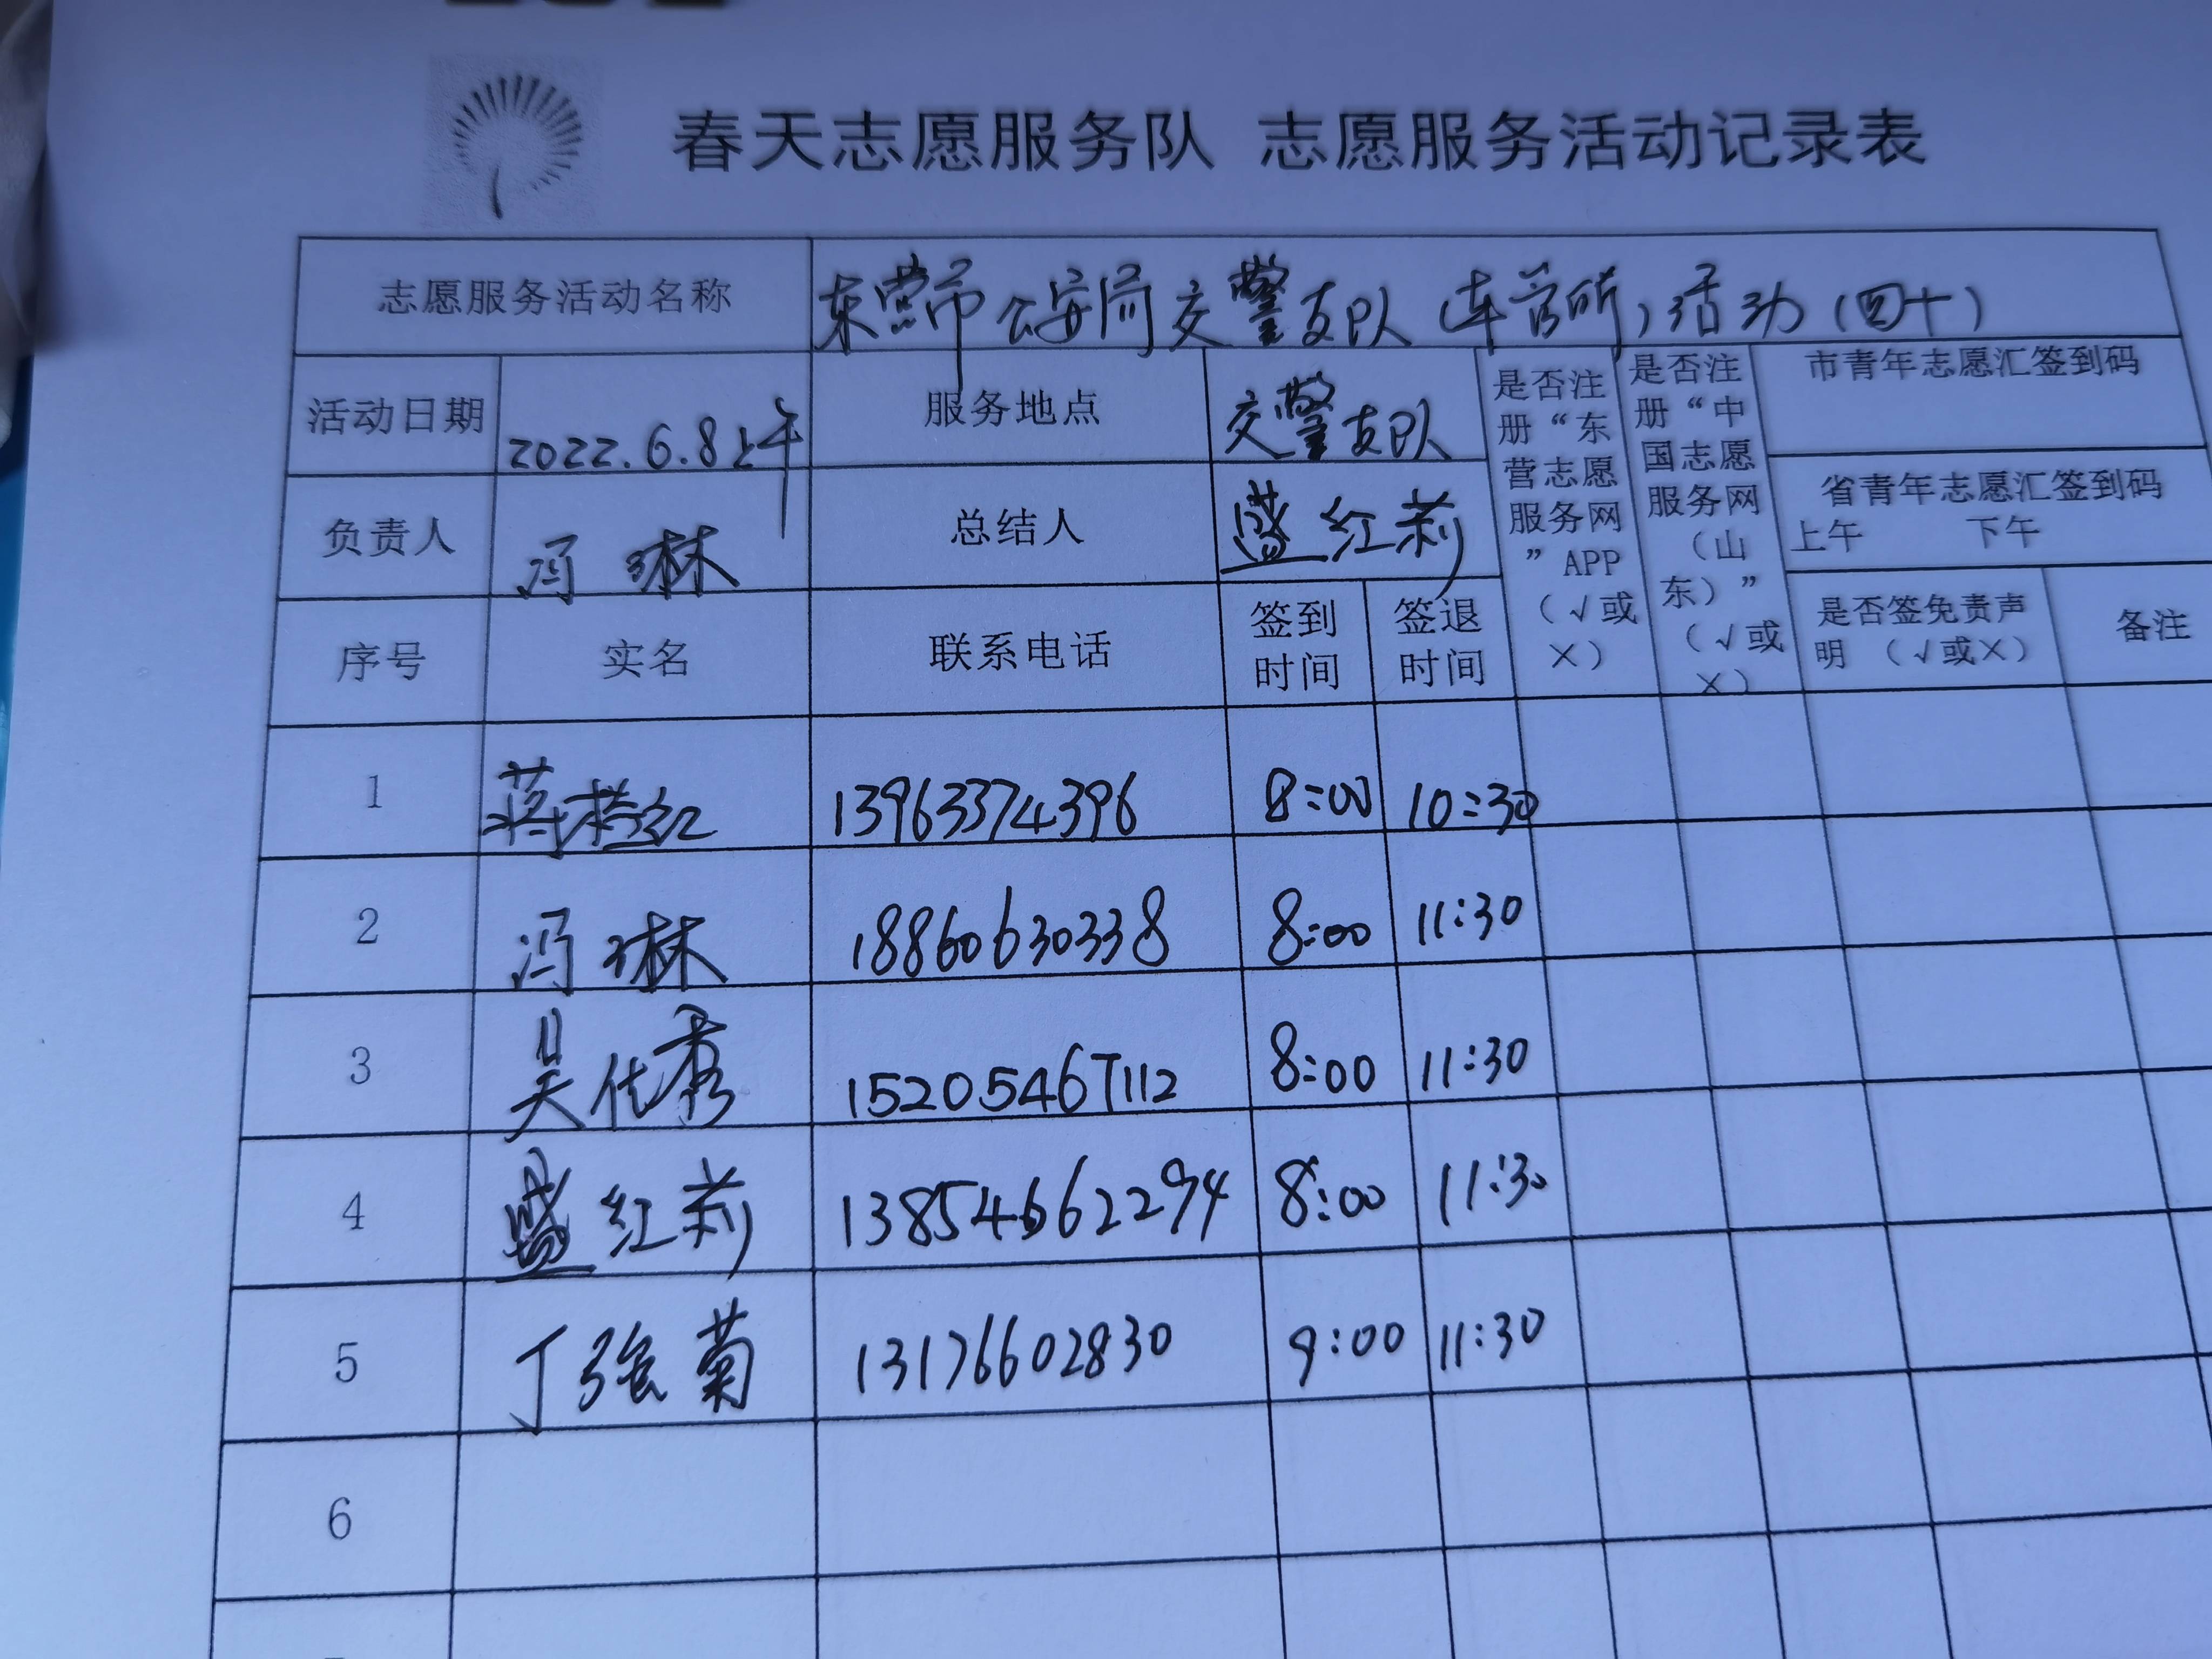 春天志愿服务队 志愿服务活动记录表
志愿服务活动名称 东营市公安局交警支队(车管所)活动(四十)
活动日期 2022.6.8上午 服务地点 交警支队
是否注册“东营志愿服务网”APP(√或×)
是否注册“中国志愿服务网(山东)”(√或×)
市青年志愿汇签到码
省青年志愿汇签到码
上午 下午
负责人 冯琳 总结人 盛红莉
序号 实名 联系电话 签到时间 签退时间 是否签免责声明 (√或×) 备注
1 蒋 红 13963374396 8:00 10:30
2 冯琳 18860630338 8:00 11:30
3 吴代秀 15205467112 8:00 11:30
4 盛红莉 13854662294 8:00 11:30
5 丁强菊 13176602830 9:00 11:30
6